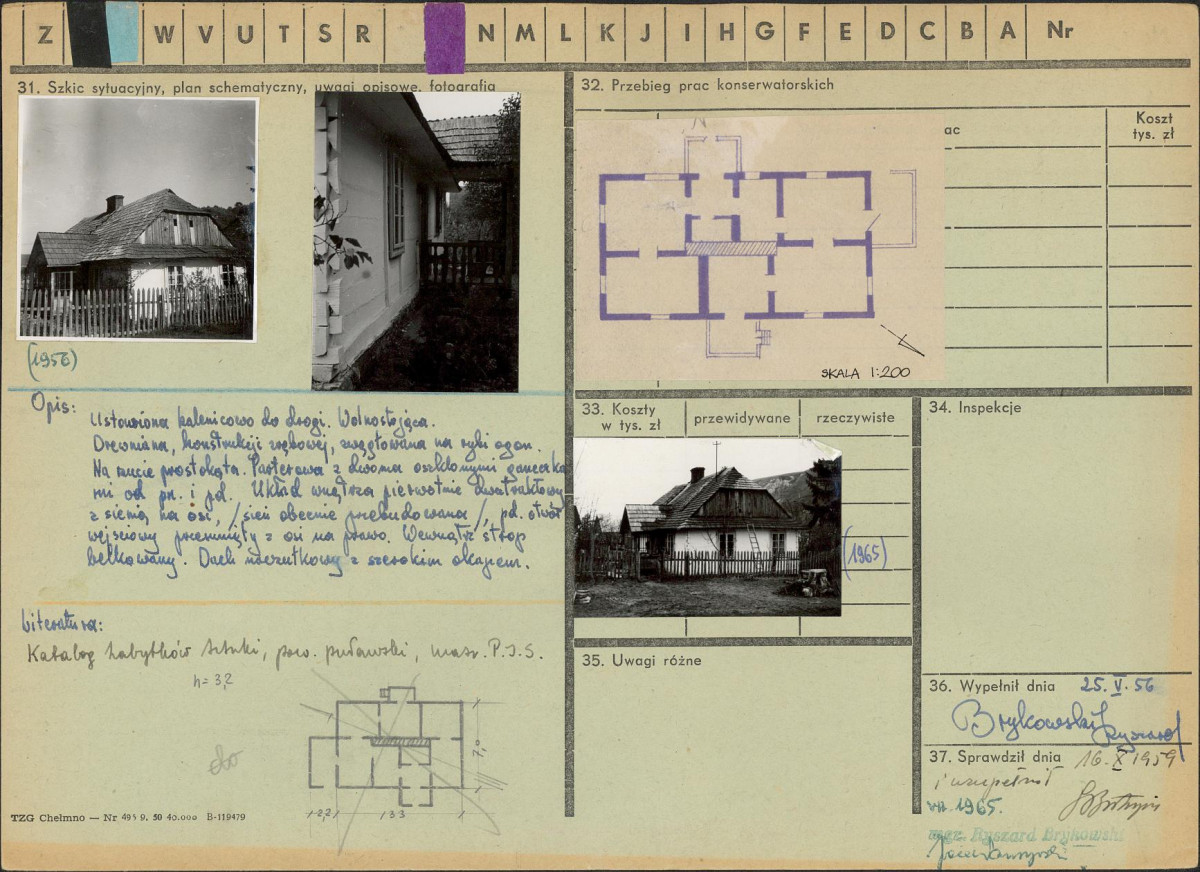 Z W V U T S R N M L K J I H G F E D C B A Nr
31. Szkic sytuacyjny, plan schematyczny, uwagi opisowe, fotografia
(1956)
Opis:
Ustawiona kalenicowo do drogi. Wolnostojąca.
Drewniana, konstrukcji zrębowej, zwęgłowana na rybi ogon.
Na rzucie prostokąta. Parterowa z dwoma oszklonymi ganecka
mi od pn. i pd. Układ wnętrza pierwotnie dwutraktowy
z sienią na osi, /sień obecnie przebudowana/, pd. otwór
wejściowy przesunięty z osi na prawo. Wewnątrz strop
belkowany. Dach naczułkowy z szerokim okapem.
Literatura:
Katalog Zabytków Sztuki, pow. puławski, masz. P.I.S.
h = 3,2
7,0
2,2
13,3
TZG Chełmno — Nr 495 9. 50 40.000 B-119479
32. Przebieg prac konserwatorskich
ac
Koszt
tys. zł
N
SKALA 1:200
33. Koszty
w tys. zł
przewidywane
rzeczywiste
(1965)
34. Inspekcje
35. Uwagi różne
36. Wypełnił dnia 25. V. 56
Brykowski Ryszard
37. Sprawdził dnia 16. X 1959
i uzupełnił
1965.
mgr. Ryszard Brykowski